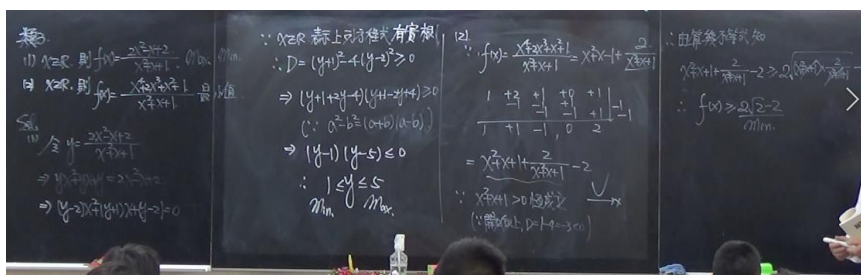 (1) x∈R, 則 f(x)=\frac{2x²-x+2}{x²+x+1} Max. Min.
(2) x∈R, 則 f(x)=\frac{x⁴+2x³+x²+1}{x²+x+1}
Sol:
(1) 令 y=\frac{2x²-x+2}{x²+x+1}
⇒ yx²+yx+y=2x²-x+2
⇒ (y-2)x²+(y+1)x+(y-2)=0
∵ x∈R 表示上列方程式有實根
∴ D=(y+1)²-4(y-2)²≥0
⇒ (y+1+2y-4)(y+1-2y+4)≥0
(∵ a²-b²=(a+b)(a-b))
⇒ (y-1)(y-5)≤0
∴ 1≤y≤5
Min. Max.
(2)
∵ f(x)=\frac{x⁴+2x³+x²+1}{x²+x+1}=x²+x-1+\frac{2}{x²+x+1}
1 +2 +1 +0 +1
-1 -1
-1 -1 -1
+1 +1
1 +1 -1, 0 2
=x²+x+1+\frac{2}{x²+x+1}-2
∵ x²+x+1>0 恆成立
(∵ 開口向上, D=1-4=-3<0)
∴ 由算幾不等式知
x²+x+1+\frac{2}{x²+x+1}-2≥2
∴ f(x)≥2√2-2
Min.